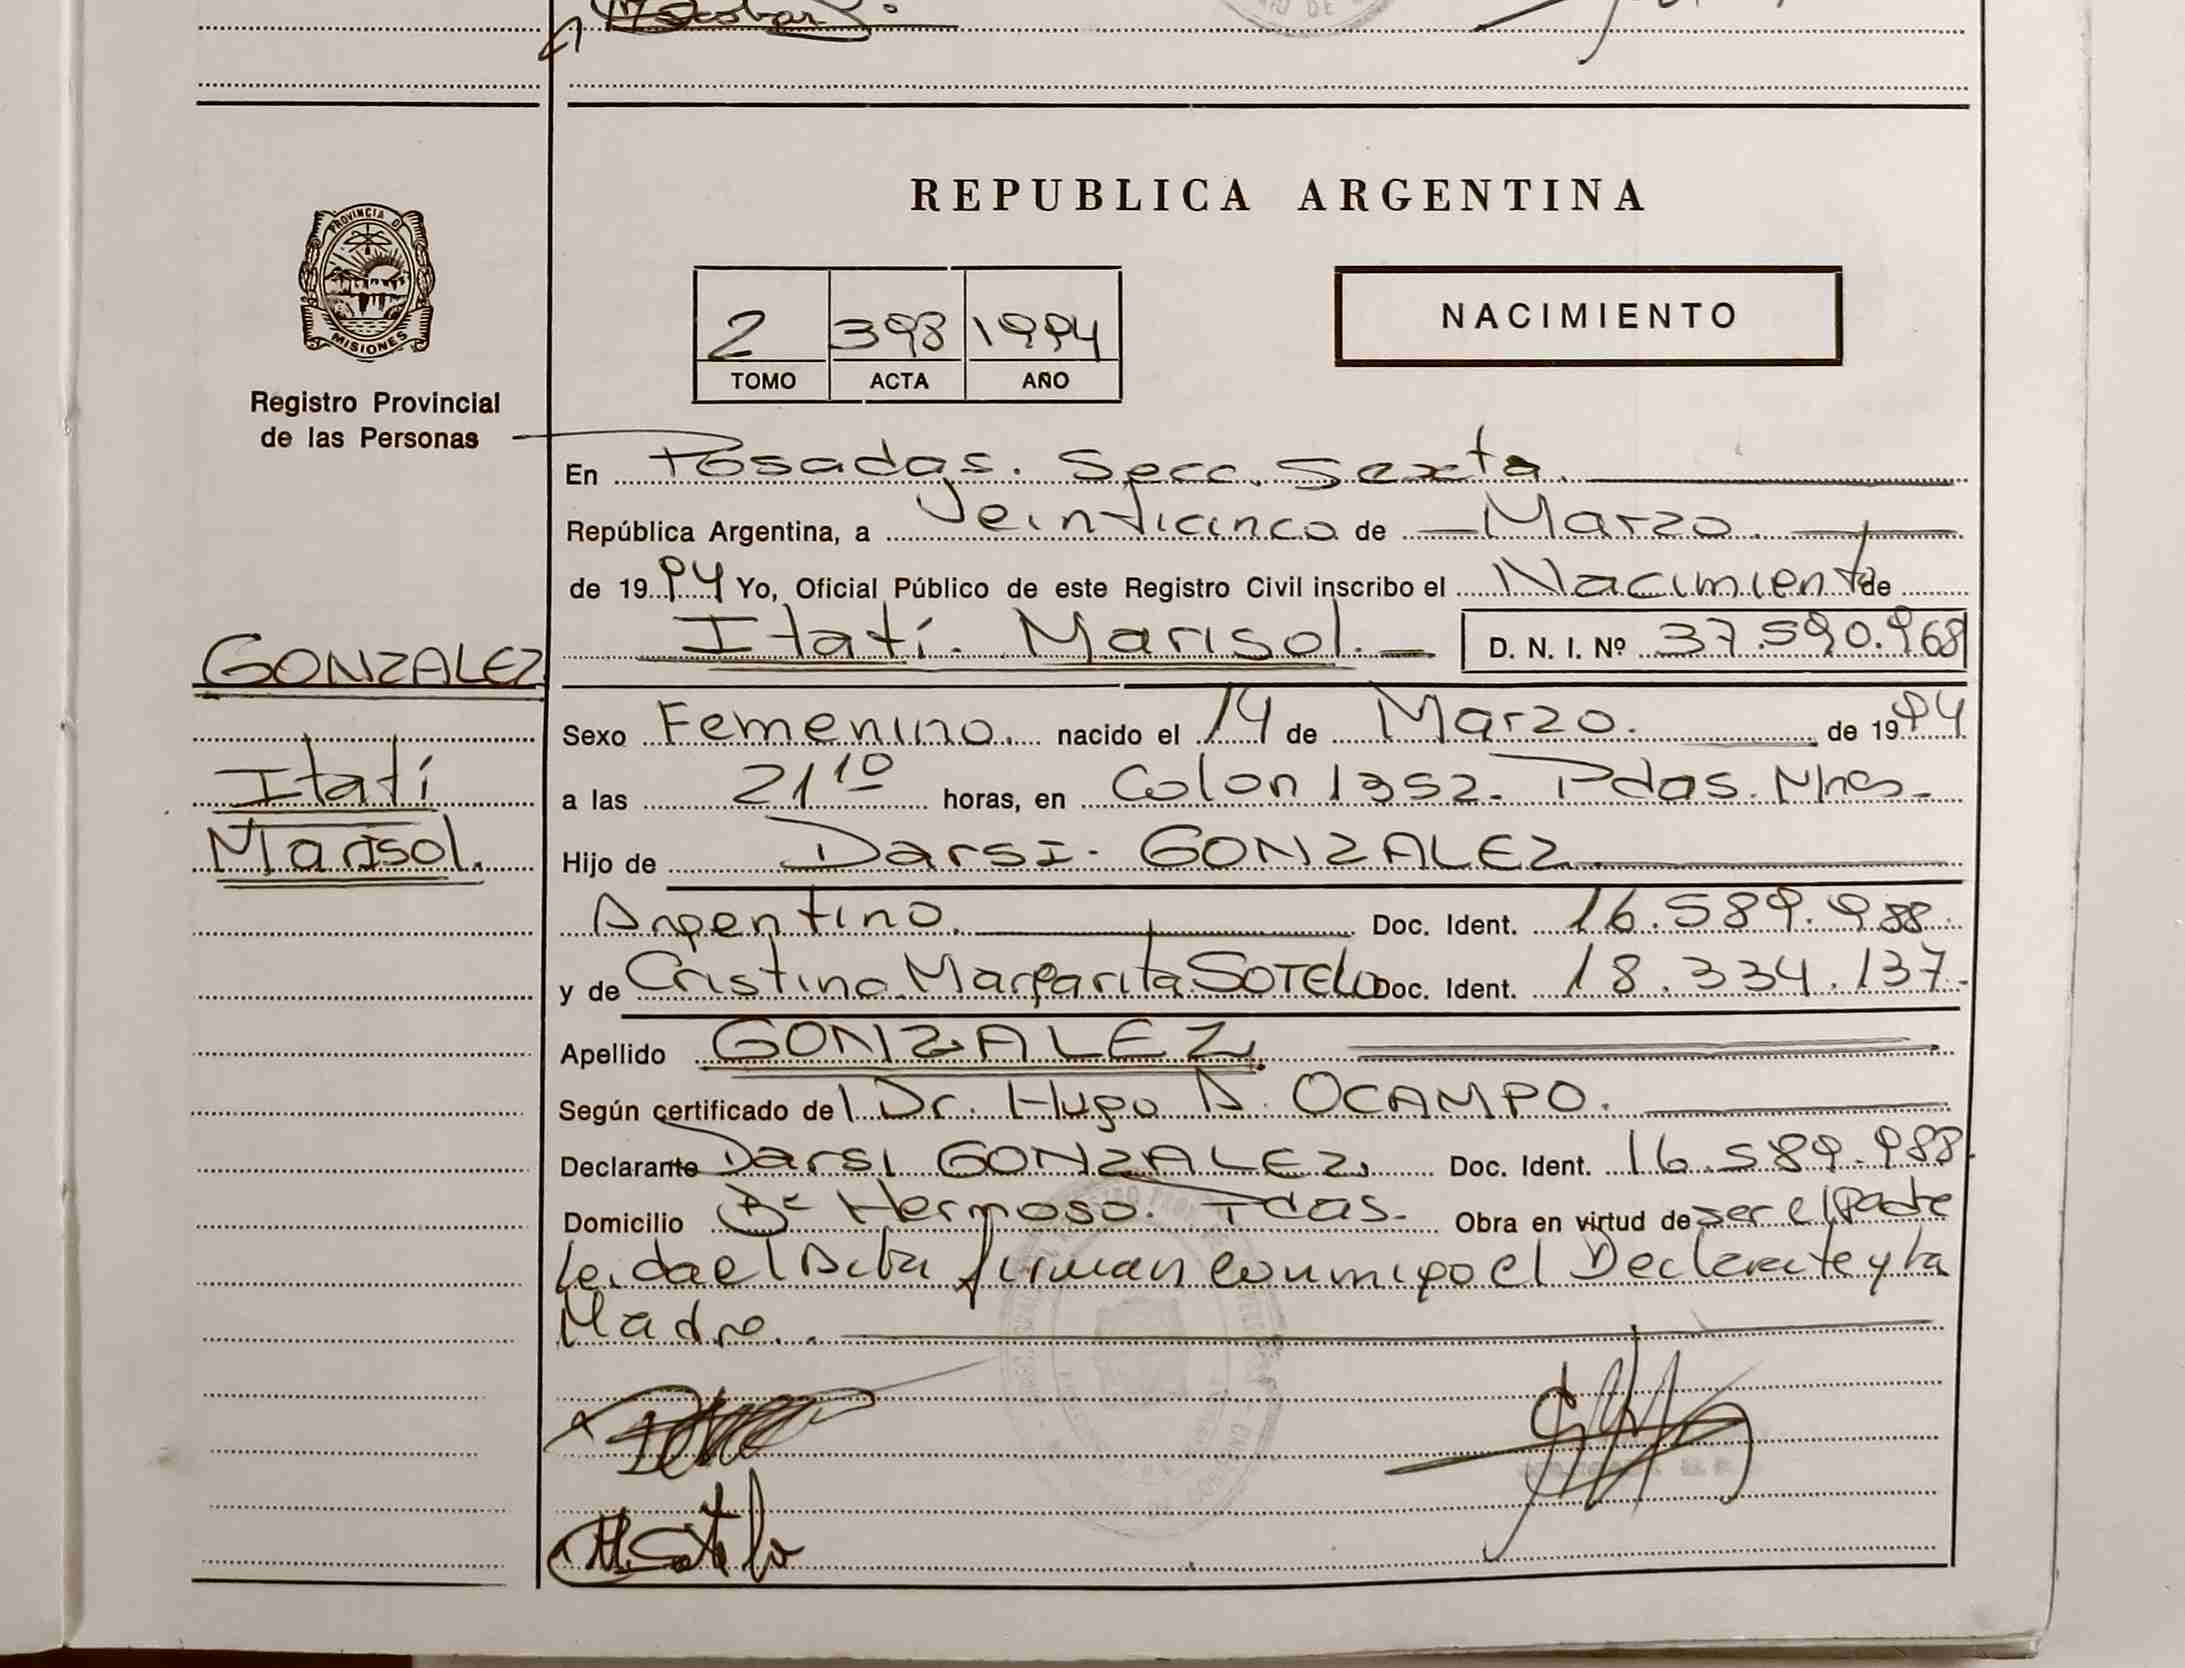 Escobar
REPUBLICA ARGENTINA
PROVINCIA D
MISIONES
Registro Provincial
de las Personas
2 398 1994
TOMO ACTA AÑO
NACIMIENTO
En Posadas. Secc. Sexta.
República Argentina, a Veinticinco de Marzo.
de 1994 Yo, Oficial Público de este Registro Civil inscribo el Nacimiento de
Itatí. Marisol. D. N. I. Nº 37.590.968
GONZALEZ
Itatí
Marisol.
Sexo Femenino. nacido el 14 de Marzo. de 1994
a las 21 10 horas, en Colon 1352. Pdas. Mnes.
Hijo de Darsi. GONZALEZ
Argentino. Doc. Ident. 16.589.988
y de Cristina Margarita SOTELO Doc. Ident. 18.334.137
Apellido GONZALEZ
Según certificado del Dr. Hugo A. OCAMPO.
Declarante Darsi GONZALEZ Doc. Ident. 16.589.988
Domicilio Bº Hermoso. Pdas. Obra en virtud de ser el Padre
Leida el Acta firman conmigo el Declarante y la
Madre.
M. Sotelo